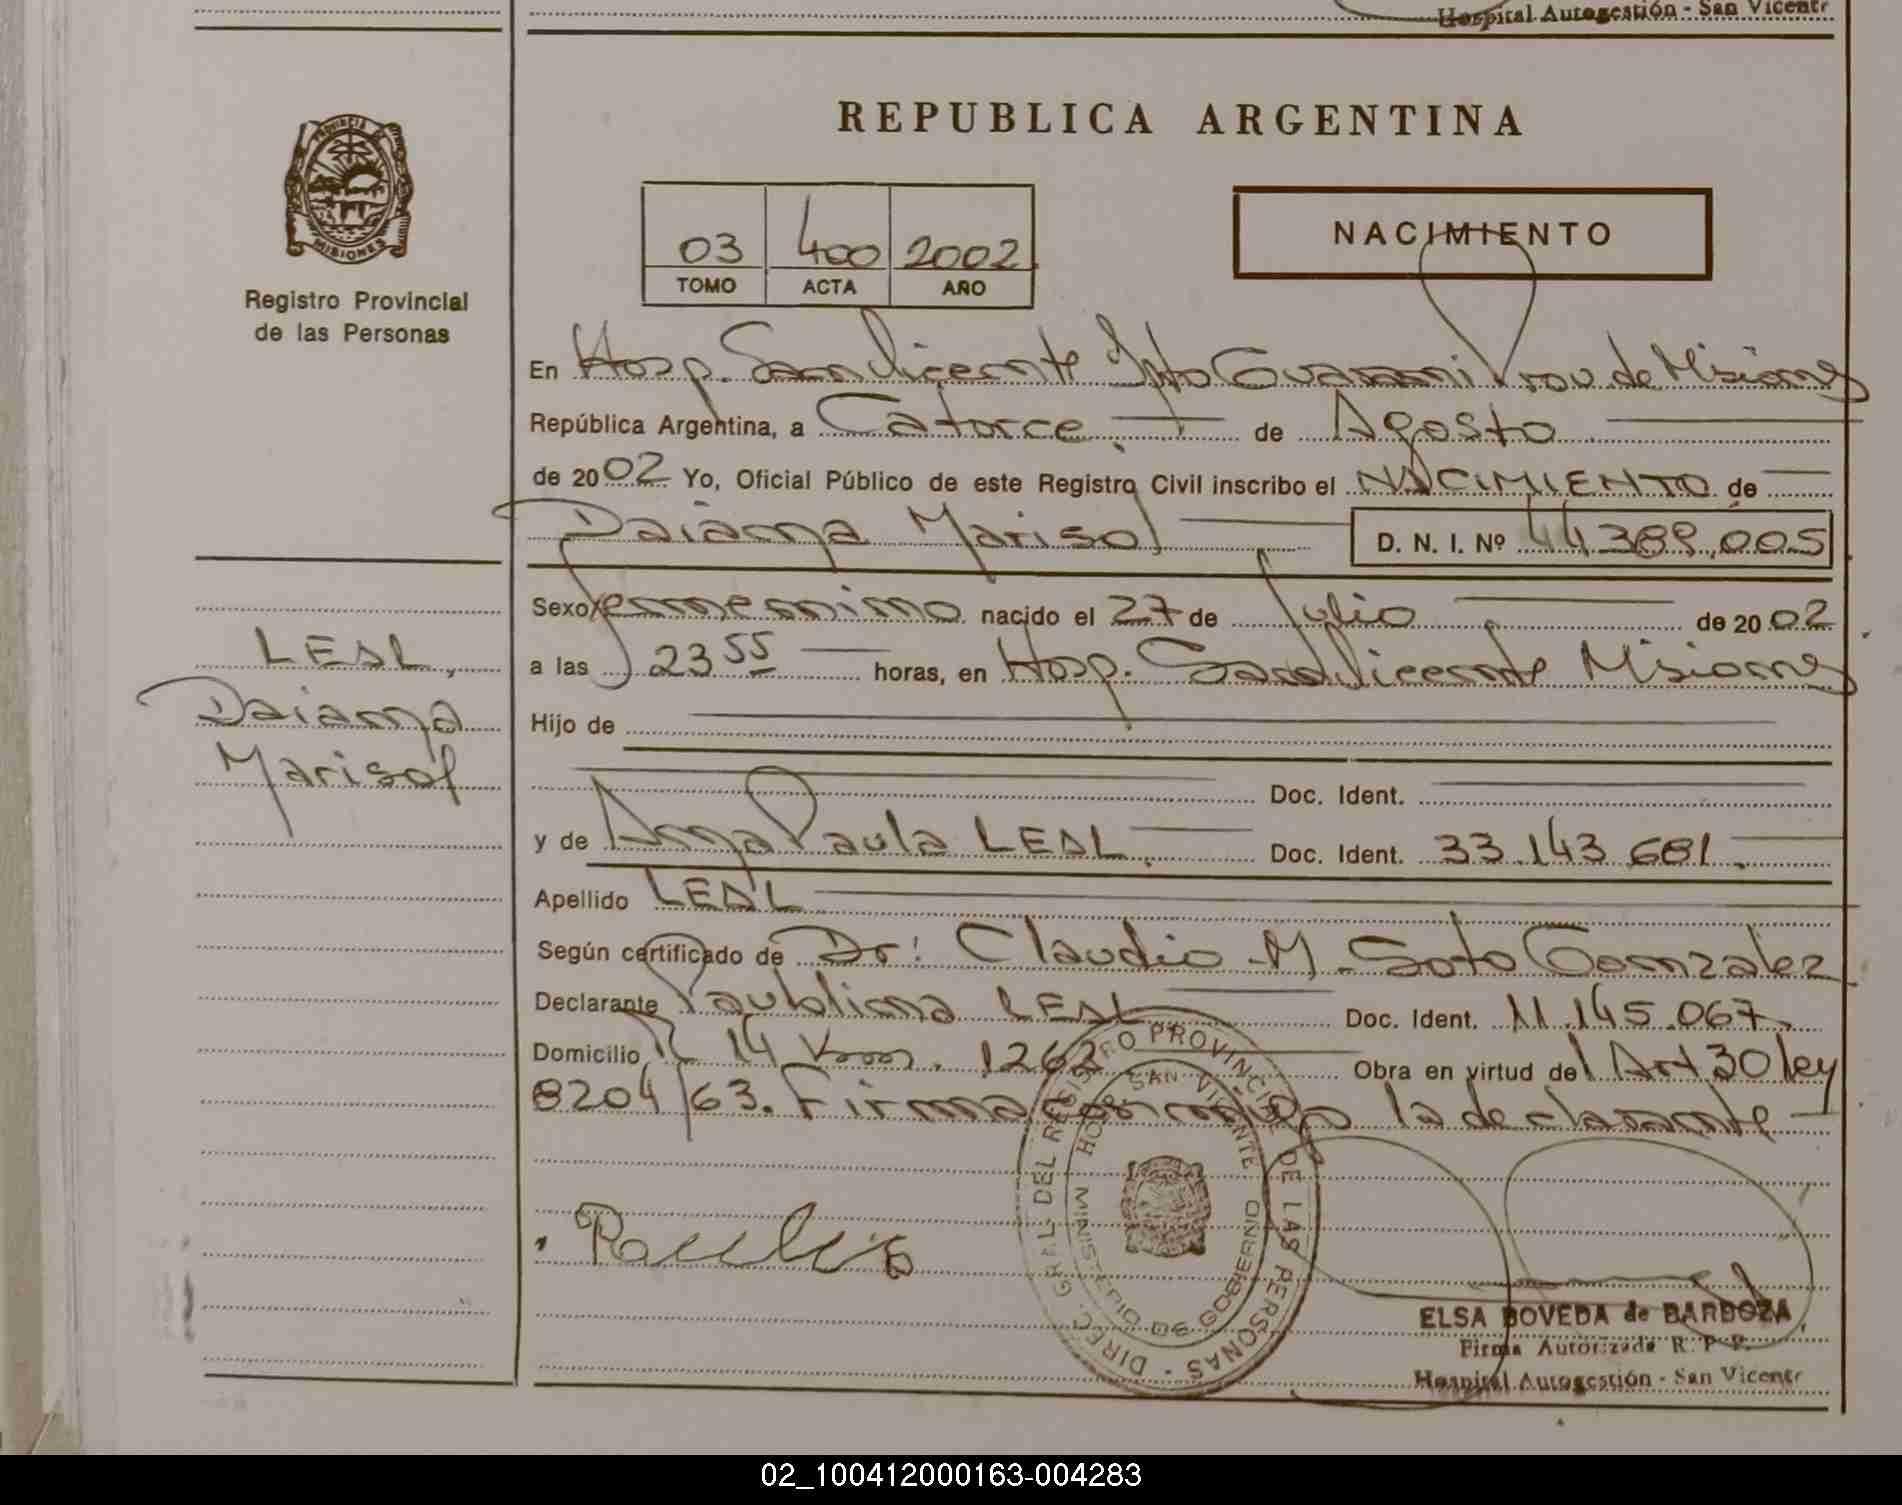 Hospital Autogestión - San Vicente
REPUBLICA ARGENTINA
PROVINCIA DE
MISIONES
Registro Provincial
de las Personas
03 400 2002
TOMO ACTA AÑO
NACIMIENTO
En Hosp. San Vicente Dpto Guarani Prov de Misiones
República Argentina, a Catorce. de Agosto
de 2002 Yo, Oficial Público de este Registro Civil inscribo el NACIMIENTO de
Daiana Marisol D. N. I. Nº 44.389.005
Sexo femenino nacido el 27 de Julio de 2002
a las 23 55 horas, en Hosp. San Vicente Misiones
Hijo de
Doc. Ident.
y de Ana Paula LEAL. Doc. Ident. 33.143.681.
Apellido LEAL
Según certificado de Dr: Claudio M. Soto Gonzalez
Declarante Paublina LEAL Doc. Ident. 11.145.067
Domicilio R 14 Km. 1262 Obra en virtud del Art 30 ley
8204/63. Firma con migo la declarante
LEAL,
Daiana
Marisol
DIREC. GRAL. DEL REGISTRO PROVINCIAL DE LAS PERSONAS
HOSP. SAN VICENTE
MINISTERIO DE GOBIERNO
ELSA BOVEDA de BARBOZA
Firma Autorizada R. P. P.
Hospital Autogestión - San Vicente
02_100412000163-004283